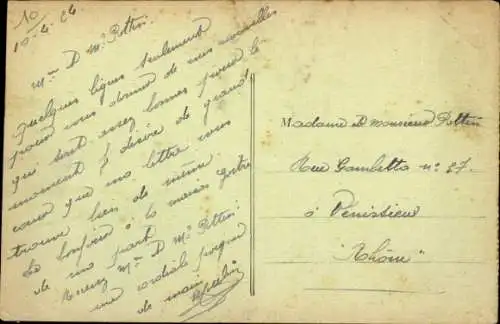 10
10-4-24
Mme & Mr Pottin.
Quelques lignes seulement
pour vous donner de mes nouvelles
qui sont assez bonnes pour le
moment & désire de grand
cœur que ma lettre vous
trouve bien de même
Le bonjour à la maison
de ma part
Recevez Mme & Mr Pottin
une cordiale poignée
de main
Madame & monsieur Pottin
Rue Gambetta no 27.
à Venissieux
"Rhône"